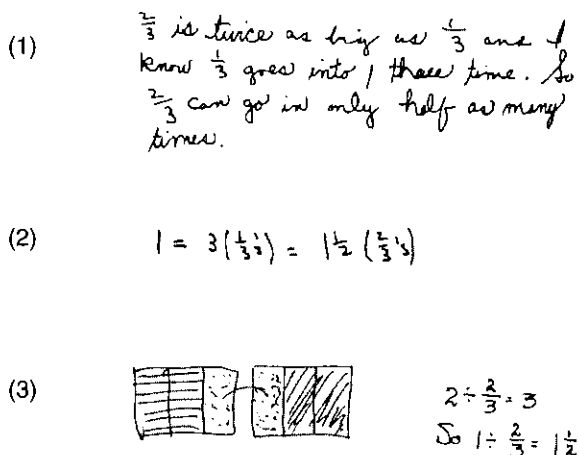 (1) 2/3 is twice as big as 1/3 and I
know 1/3 goes into 1 three time. So
2/3 can go in only half as many
times.
(2) 1 = 3 (1/3's) = 1 1/2 (2/3's)
(3) 2 ÷ 2/3 = 3
So 1 ÷ 2/3 = 1 1/2